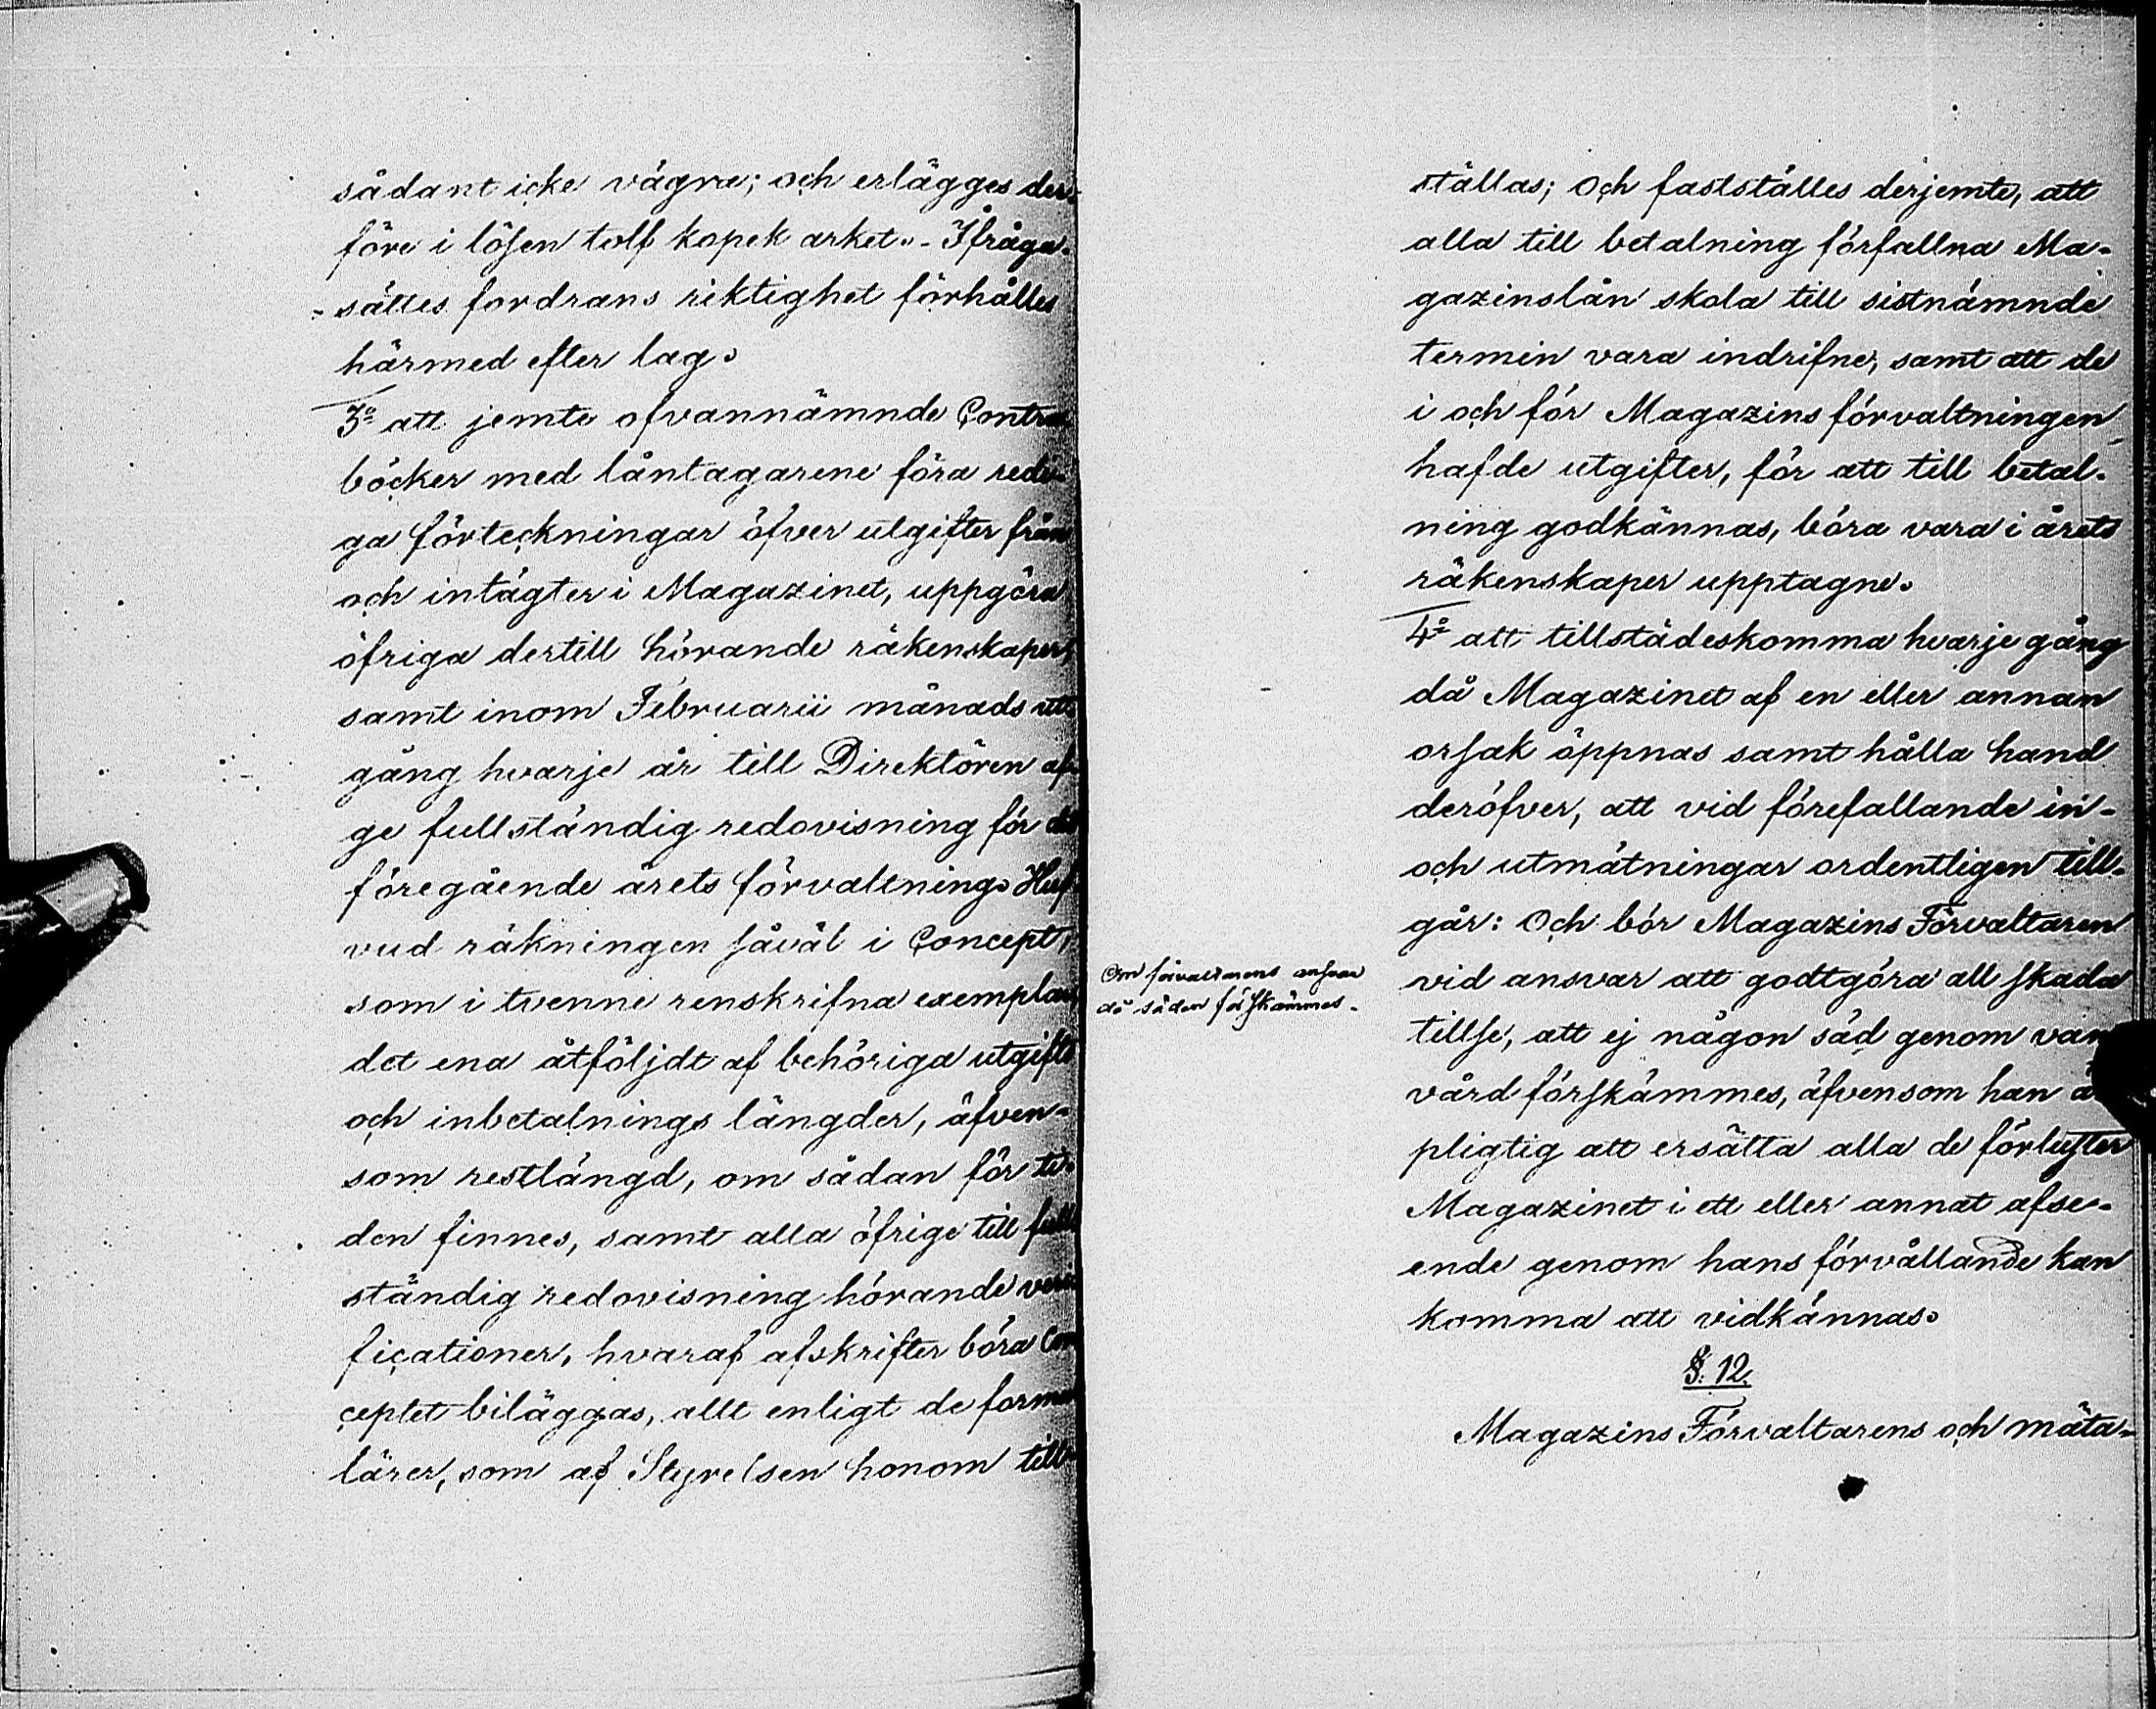 sådant icke vägra; och erlägges der-
före i lösen tolf kopek arket. - Ifråga-
- sättes fordrans riktighet förhålles
härmed efter lag.
3º att jemte ofvannämnde Contra
böcker med låntagarene föra redi-
ga förteckningar öfver utgifter från
och intägter i Magazinet, uppgöra
öfriga dertill hörande räkenskaper,
samt inom Februarii månads ut-
gång hvarje år till Direktören af-
ge fullständig redovisning för det
föregående årets förvaltning. Huf
vud räkningen såväl i Concept,
som i tvenne renskrifna exemplar,
det ena åtföljdt af behöriga utgifts
och inbetalnings längder, äfven-
som restlängd, om sådan för ti-
den finnes, samt alla öfrige till full
ständig redovisning hörande veri
ficationer, hvaraf afskrifter böra Con
ceptet biläggas, allt enligt de formu
lärer, som af Styrelsen honom till-
ställas; Och fastställes derjemte, att
alla till betalning förfallna Ma-
gazinslån skola till sistnämnde
termin vara indrifne, samt att de
i och för Magazins förvaltningen
hafde utgifter, för att till betal-
ning godkännas, böra vara i årets
räkenskaper upptagne.
4º att tillstädeskomma hvarje gång
då Magazinet af en eller annan
orsak öppnas samt hålla hand
deröfver, att vid förefallande in-
och utmätningar ordentligen till-
går: Och bör Magazins Förvaltaren
Om förvaltarens ansvar
då säden förskämmes.
vid ansvar att godtgöra all skada
tillse, att ej någon säd genom van
vård förskämmes, äfvensom han
pligtig att ersätta alla de förluster
Magazinet i ett eller annat afse-
ende genom hans förvållande kan
komma att vidkännas.
§. 12.
Magazins Förvaltarens och mäta-